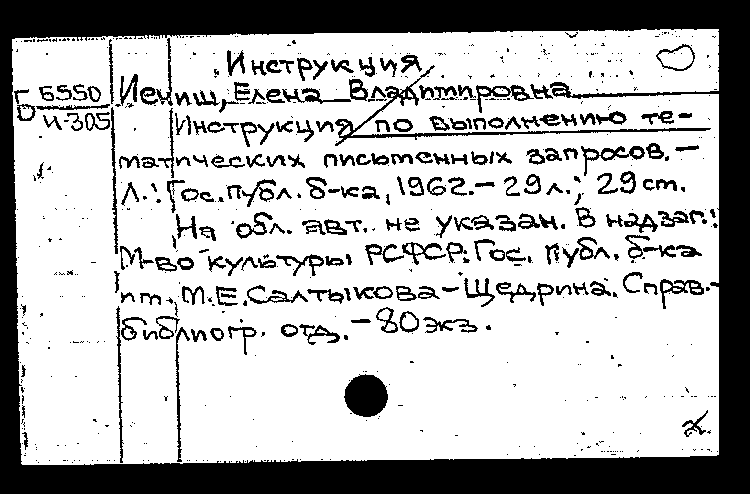 Инструкция
Б 5550
И-305
Иениш, Елена Владимировна
Инструкция по выполнению те-
матических письменных запросов. -
Л.: Гос. публ. б-ка, 1962. - 29 л.; 29 см.
На обл. авт. не указан. В надзаг.:
М-во культуры РСФСР. Гос. публ. б-ка
им. М.Е. Салтыкова-Щедрина. Справ.-
библиогр. отд. - 80 экз.